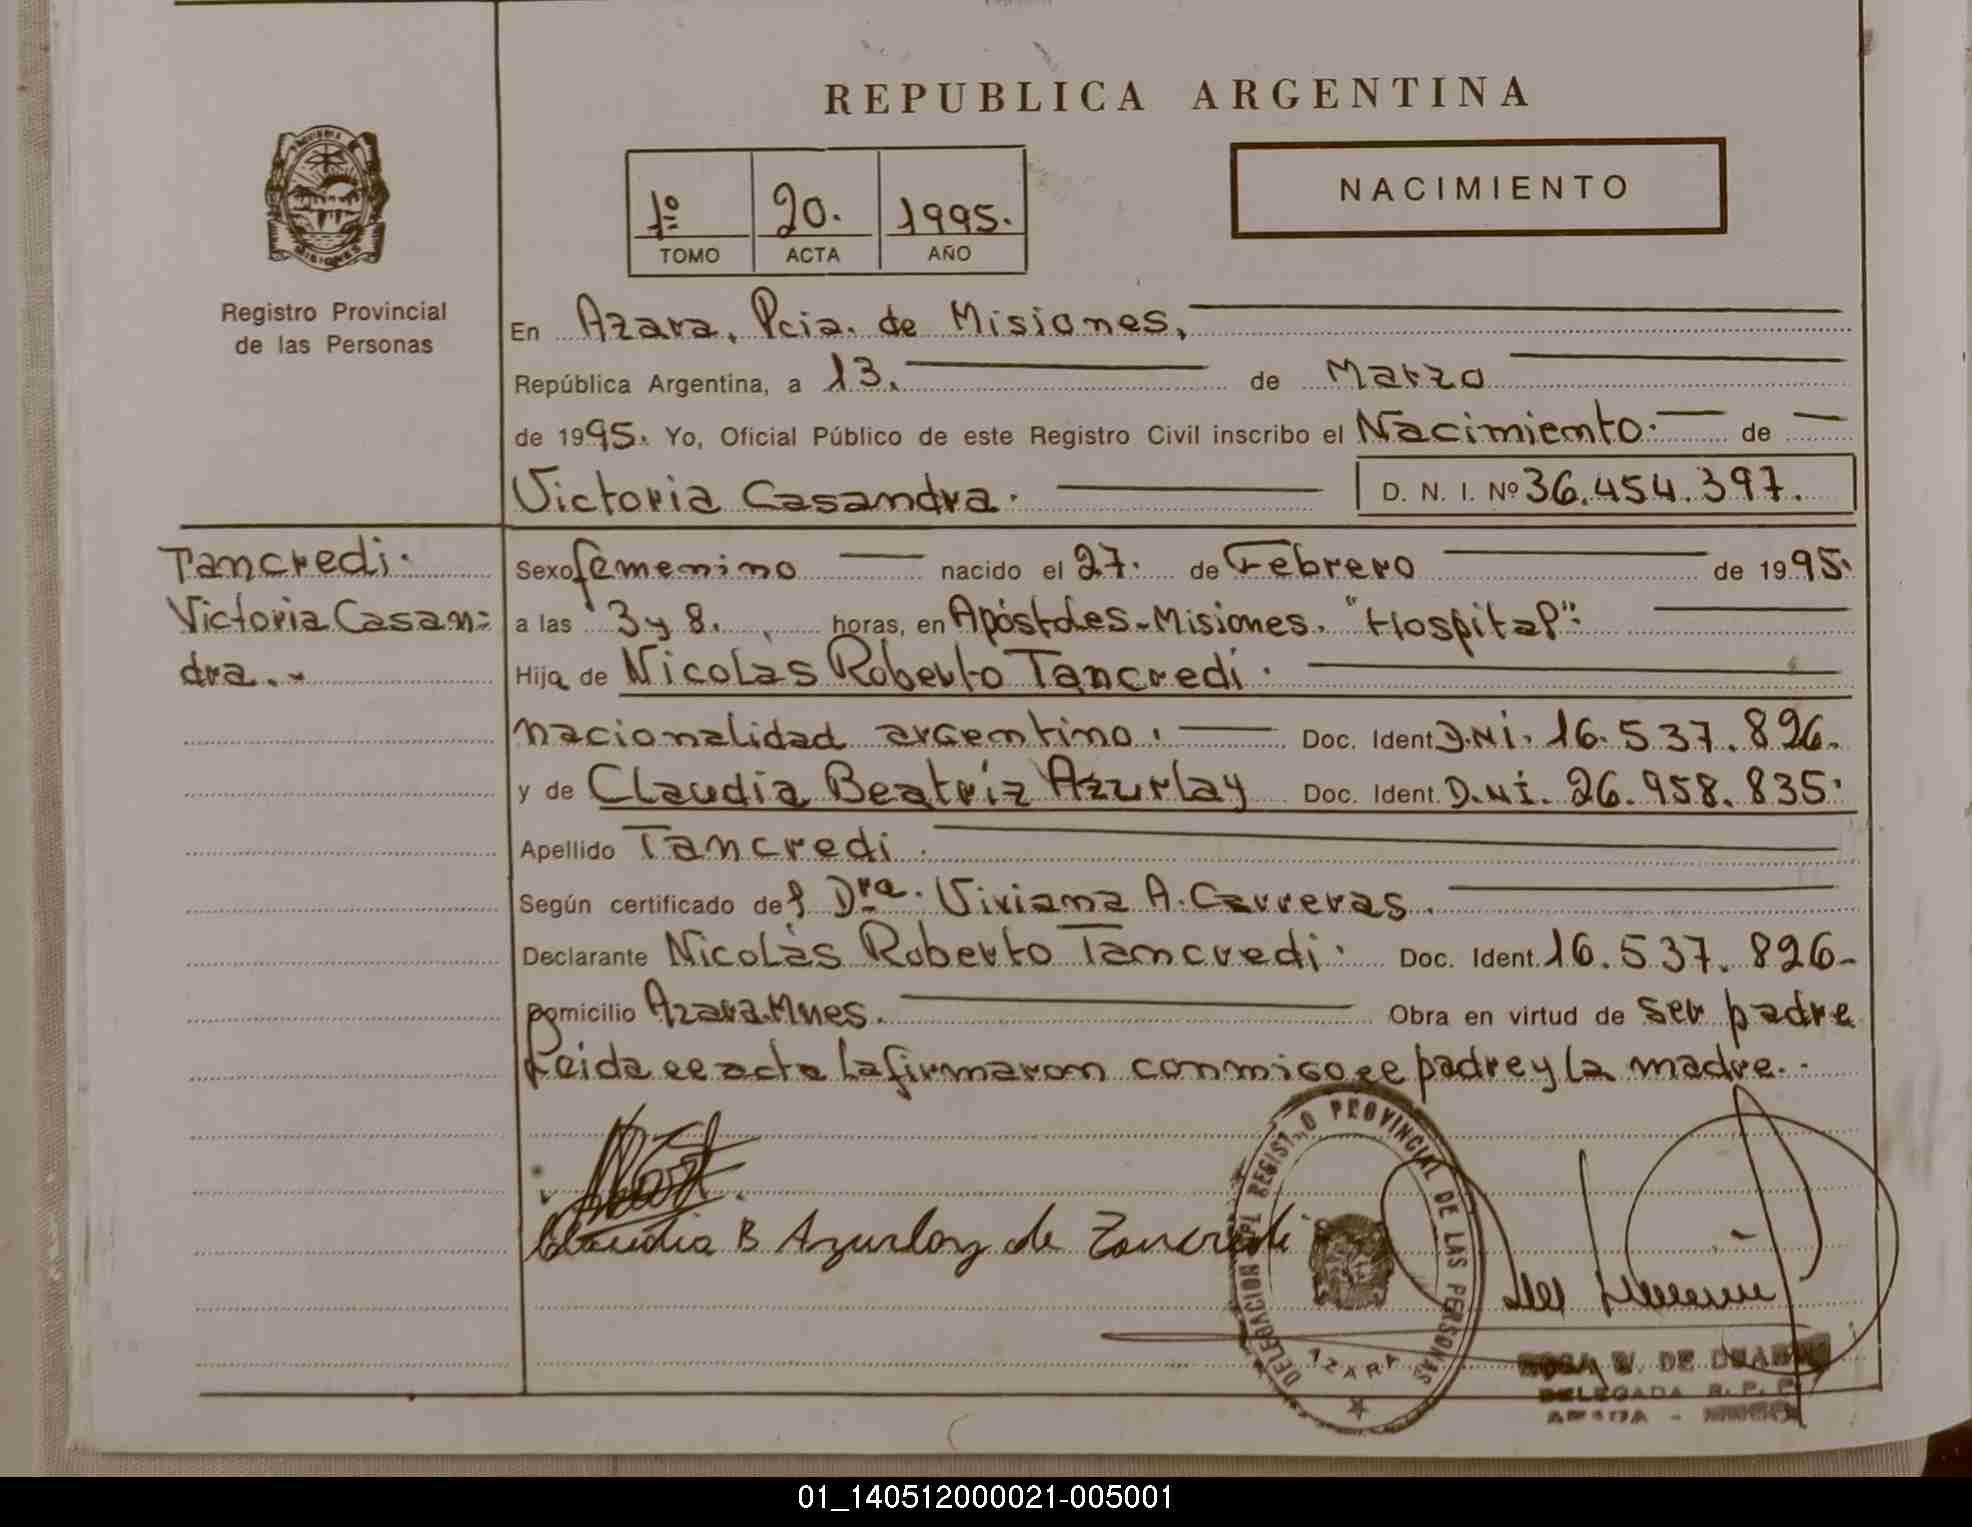 REPUBLICA ARGENTINA
NACIMIENTO
1º 20. 1995.
TOMO ACTA AÑO
MISIONES
Registro Provincial
de las Personas
En Azara, Pcia. de Misiones,
República Argentina, a 13. de Marzo
de 1995. Yo, Oficial Público de este Registro Civil inscribo el Nacimiento. de
Victoria Casandra. D. N. I. Nº 36.454.397.
Tancredi.
Victoria Casan=
dra.-
Sexo femenino nacido el 27. de Febrero de 1995.
a las 3 y 8. horas, en Apóstoles-Misiones. "Hospital":
Hija de Nicolás Roberto Tancredi.
nacionalidad argentino. Doc. Ident D.Ni. 16.537.826.
y de Claudia Beatríz Azurlay Doc. Ident. D.Ni. 26.958.835.
Apellido Tancredi.
Según certificado del Dra. Viviana A. Carreras.
Declarante Nicolás Roberto Tancredi. Doc. Ident. 16.537.826-
Domicilio Azara.Mnes. Obra en virtud de ser padre
Leida el acta la firmaron conmigo el padre y la madre.-
Claudia B Azurlay de Tancredi
DELEGACION REGISTRO PROVINCIAL DE LAS PERSONAS
AZARA
ROSA DE
DELEGADA R. P. P.
01_140512000021-005001